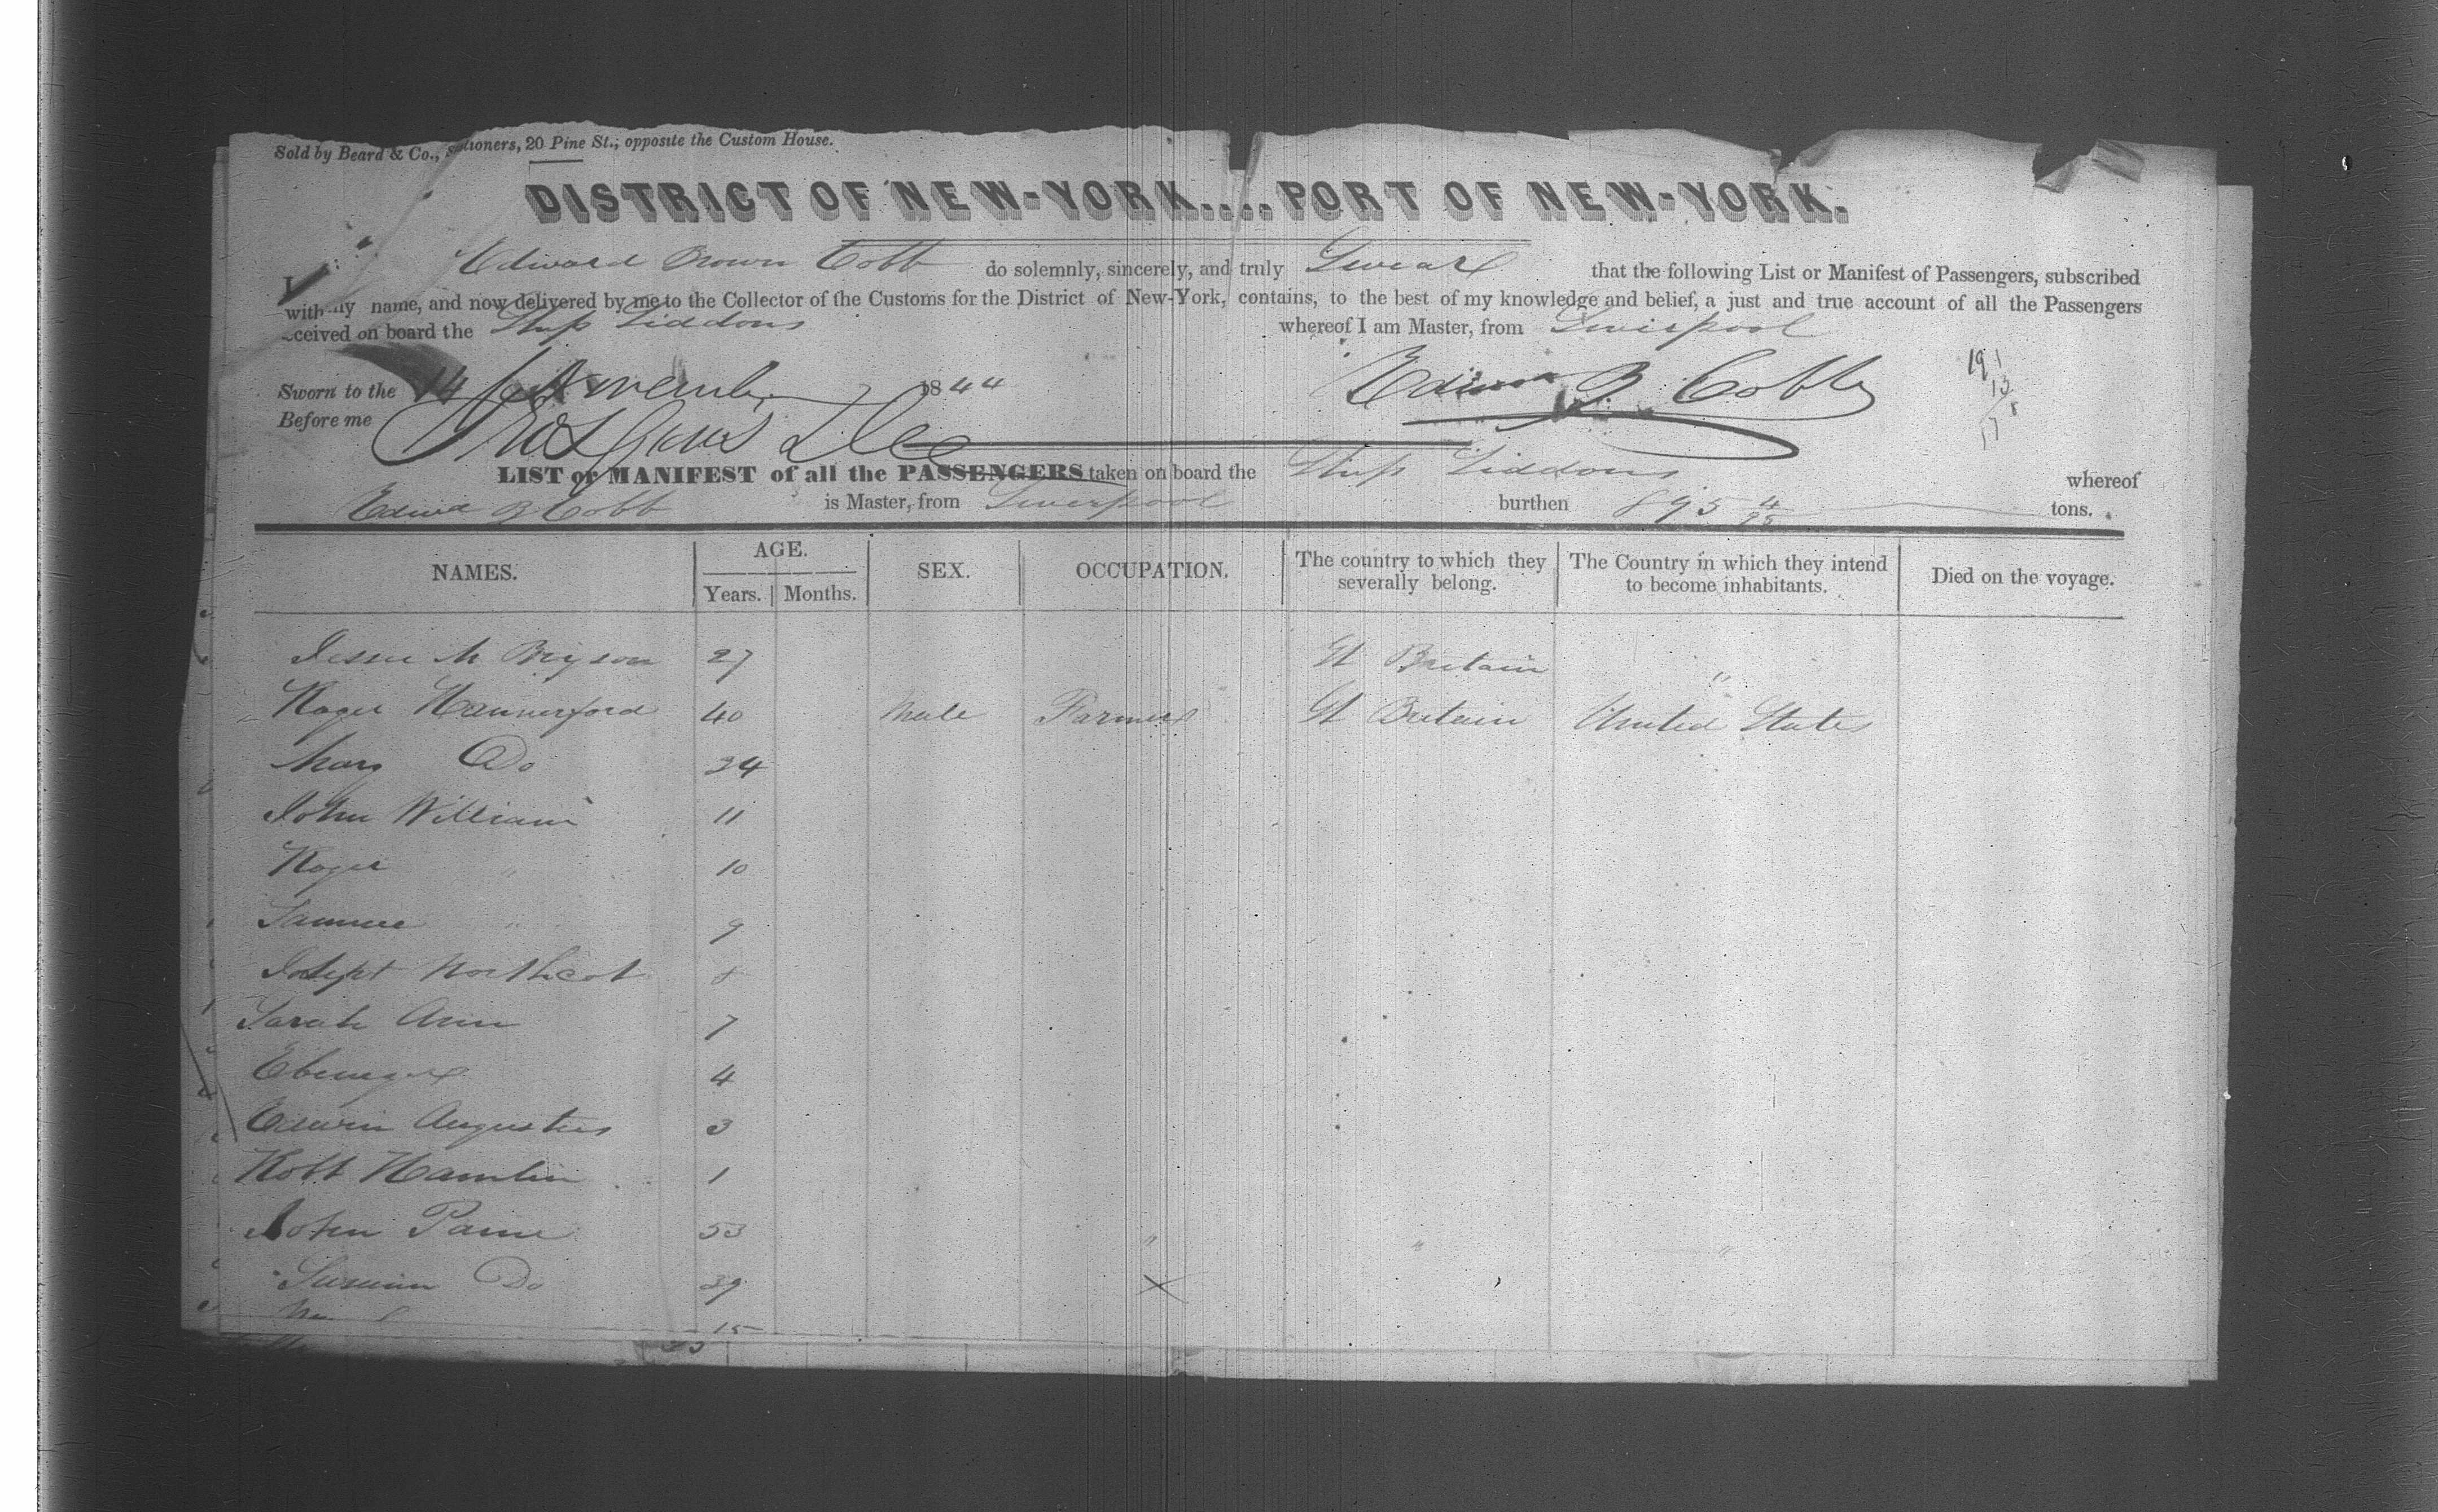 Sold by Beard & Co., Stationers, 20 Pine St., opposite the Custom House.
DISTRICT OF NEW-YORK....PORT OF NEW-YORK.
I Edward Brown Cobb do solemnly, sincerely, and truly Swear that the following List or Manifest of Passengers, subscribed
with my name, and now delivered by me to the Collector of the Customs for the District of New-York, contains, to the best of my knowledge and belief, a just and true account of all the Passengers
received on board the Ship Siddons whereof I am Master, from Liverpool
Sworn to the 14 November 1844 Edward B Cobb
Before me
LIST or MANIFEST of all the PASSENGERS taken on board the Ship Siddons whereof
Edwd B Cobb is Master, from Liverpool burthen 895 4/95 tons.
NAMES. AGE. Years. Months. SEX. OCCUPATION. The country to which they severally belong. The Country in which they intend to become inhabitants. Died on the voyage.
Jesse M Bryson 27 Gt Britain "
Roger Hannerford 40 Male Farmer Gt Britain United States
Mary Do 34
John William 11
Roger " 10
Samuel " 9
Joseph Northcot 8
Sarah Ann 7
Ebenezer 4
Edwin Augustus 3
Robt Hamlin 1
John Paine 53 " " "
Do 39 X
15